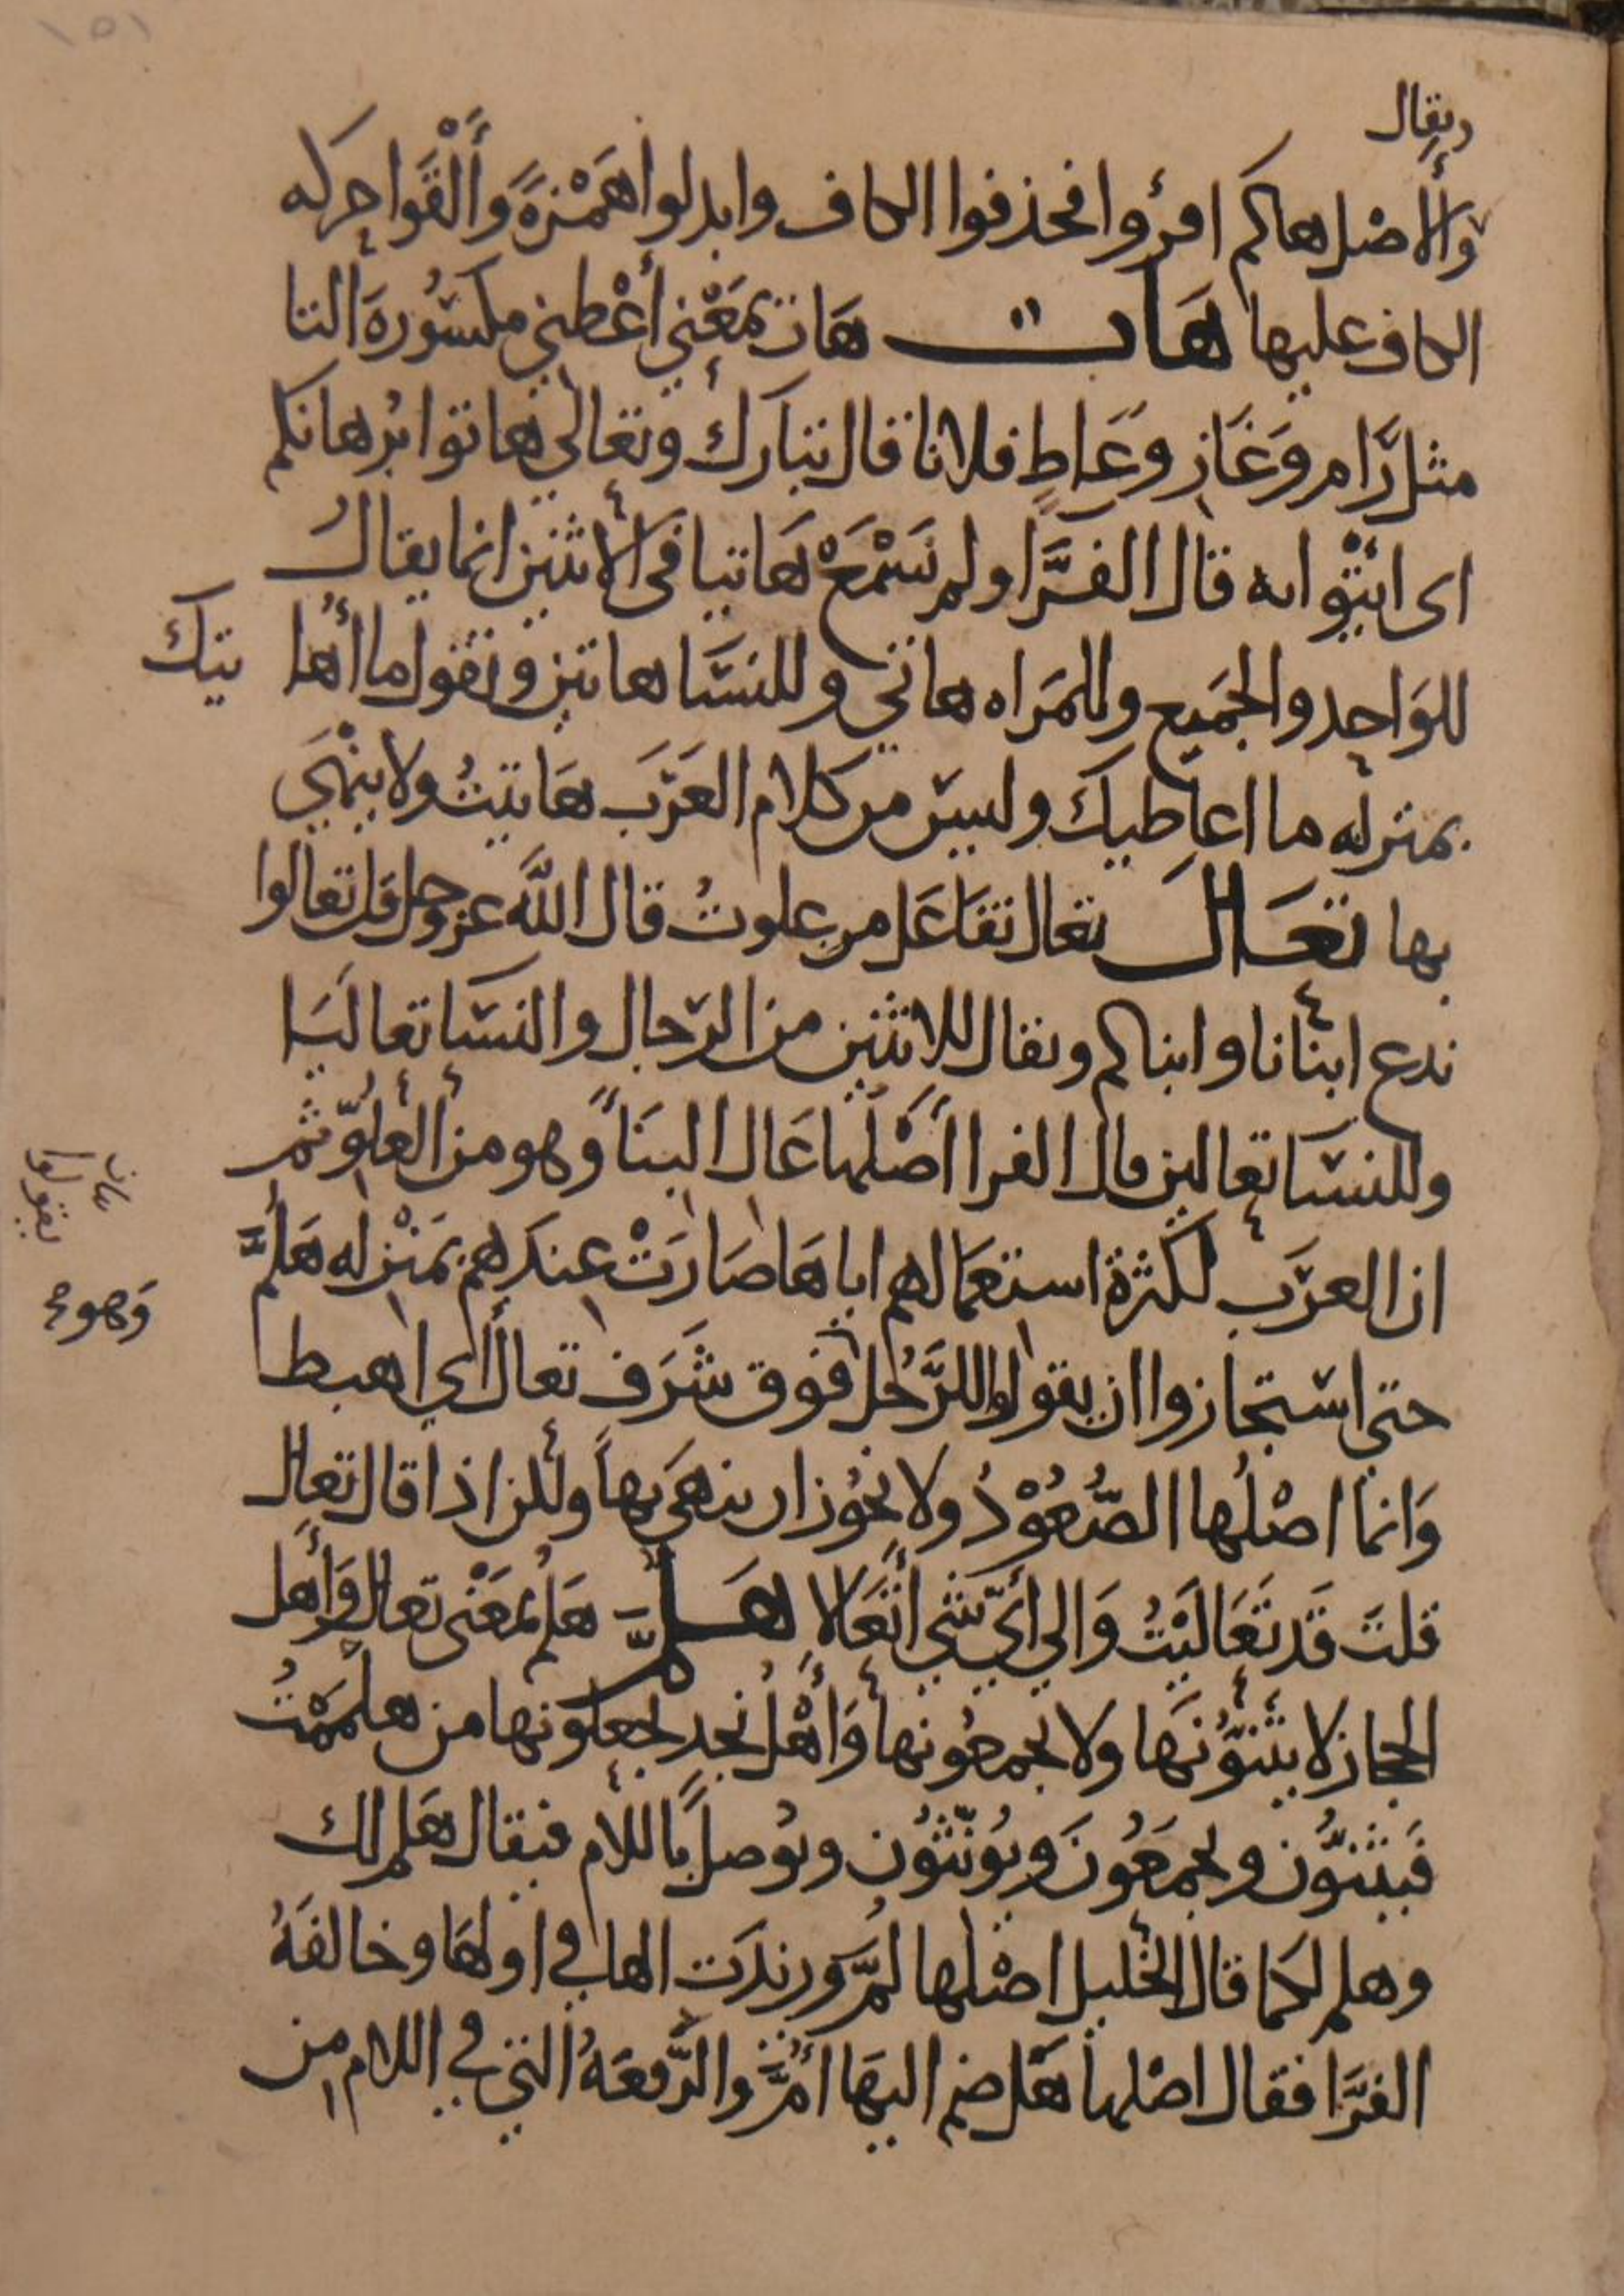 ١٥١
ويقال
والاصل هاكم اقرؤوا فحذفوا الكاف وابدلوا هَمْزةً وَأَلْقَوا حركه
الكاف عليها هَات هَات بمَعْني أَعْطِني مكسُورةَ التا
مثل رَام وَغَازٍ وَعَاطٍ فلانا قال تبارك وتعالى هاتوا بُرهانكم
اى ائتوا به قال الفَرَّا ولم نَسْمَعْ هَاتيا في الاثنين انما يقال
للوَاحِد والجَميع وللمَراه هاتي وللنسَا هاتين وتقول ما أُهَا
تيك
بمنزله ما اعاطيك وليسَ من كلام العَرَب هَاتيتُ ولا يُنْهَي
بها تعَال تعال تفَاعَل من علوتُ قال الله عز وجل قل تعالوا
ندع ابنانا وابناكم ويقال للاثنين من الرّجال والنسَا تعاليَا
وللنسَا تعالين قال الفرا أَصْلها عَال البنَاً وهو من العُلوّ ثم
ان العرَب لكثرة استعمَالهم اياهَا صَارَتْ عندهم بمَنْزله هَلُمَّ
وَهو
حتى استجازوا ان يقولوا للرَّجُل فوق شَرَف تعال أي اهبط
وَانما اصْلُها الصُّعُوْدُ ولا يجُوز ان ينهَي بهَا ولكن اذا قال تعال
قلتَ قَد تَعَاليْتُ وَالي أيّ شي أَتَعَالا هَلمَّ هَلُم بمَعْنى تعال وَأَهل
الحجاز لا يثنوُّنَها ولا يجمعُونها وَأَهْل نجد يجعلونها من هلمَمْتُ
فَيثنوُّن ويجمَعُونَ ويُونّثُون ويُوصل باللام فيقال هَلم لك
وهلم لكما قال الخليل اصْلها لُمَّ وزيدَت الها في اولهَا وخالفَهُ
الفَرَّا فقال اصْلها هَل ضم اليهَا أُمَّ والرَّفعَهُ التي في اللام من